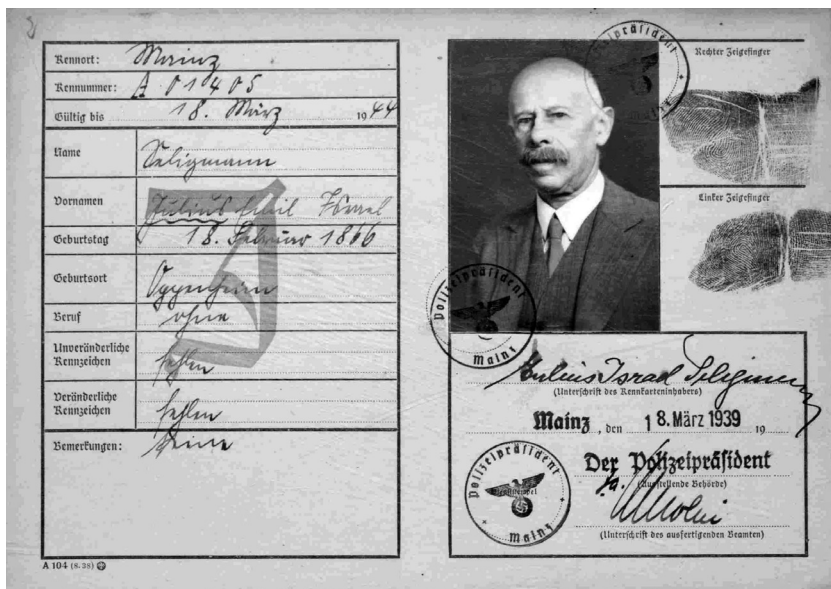 Kennort: Mainz
Kennummer: A 01405
Gültig bis 18. März 1944
Name Seligmann
Vornamen Julius Emil Israel
Geburtstag 18. Februar 1866
Geburtsort Oppenheim
Beruf ohne
Unveränderliche
Kennzeichen fehlen
Veränderliche
Kennzeichen fehlen
Bemerkungen: Keine
J
A 104 (8. 38)
Polizeipräsident
Mainz
Rechter Zeigefinger
Linker Zeigefinger
Polizeipräsident
Mainz
Julius Israel Seligmann
(Unterschrift des Kennkarteninhabers)
Mainz, den 18. März 1939 19
Polizeipräsident
Mainz
Der Polizeipräsident
(Ausstellende Behörde)
(Unterschrift des ausfertigenden Beamten)